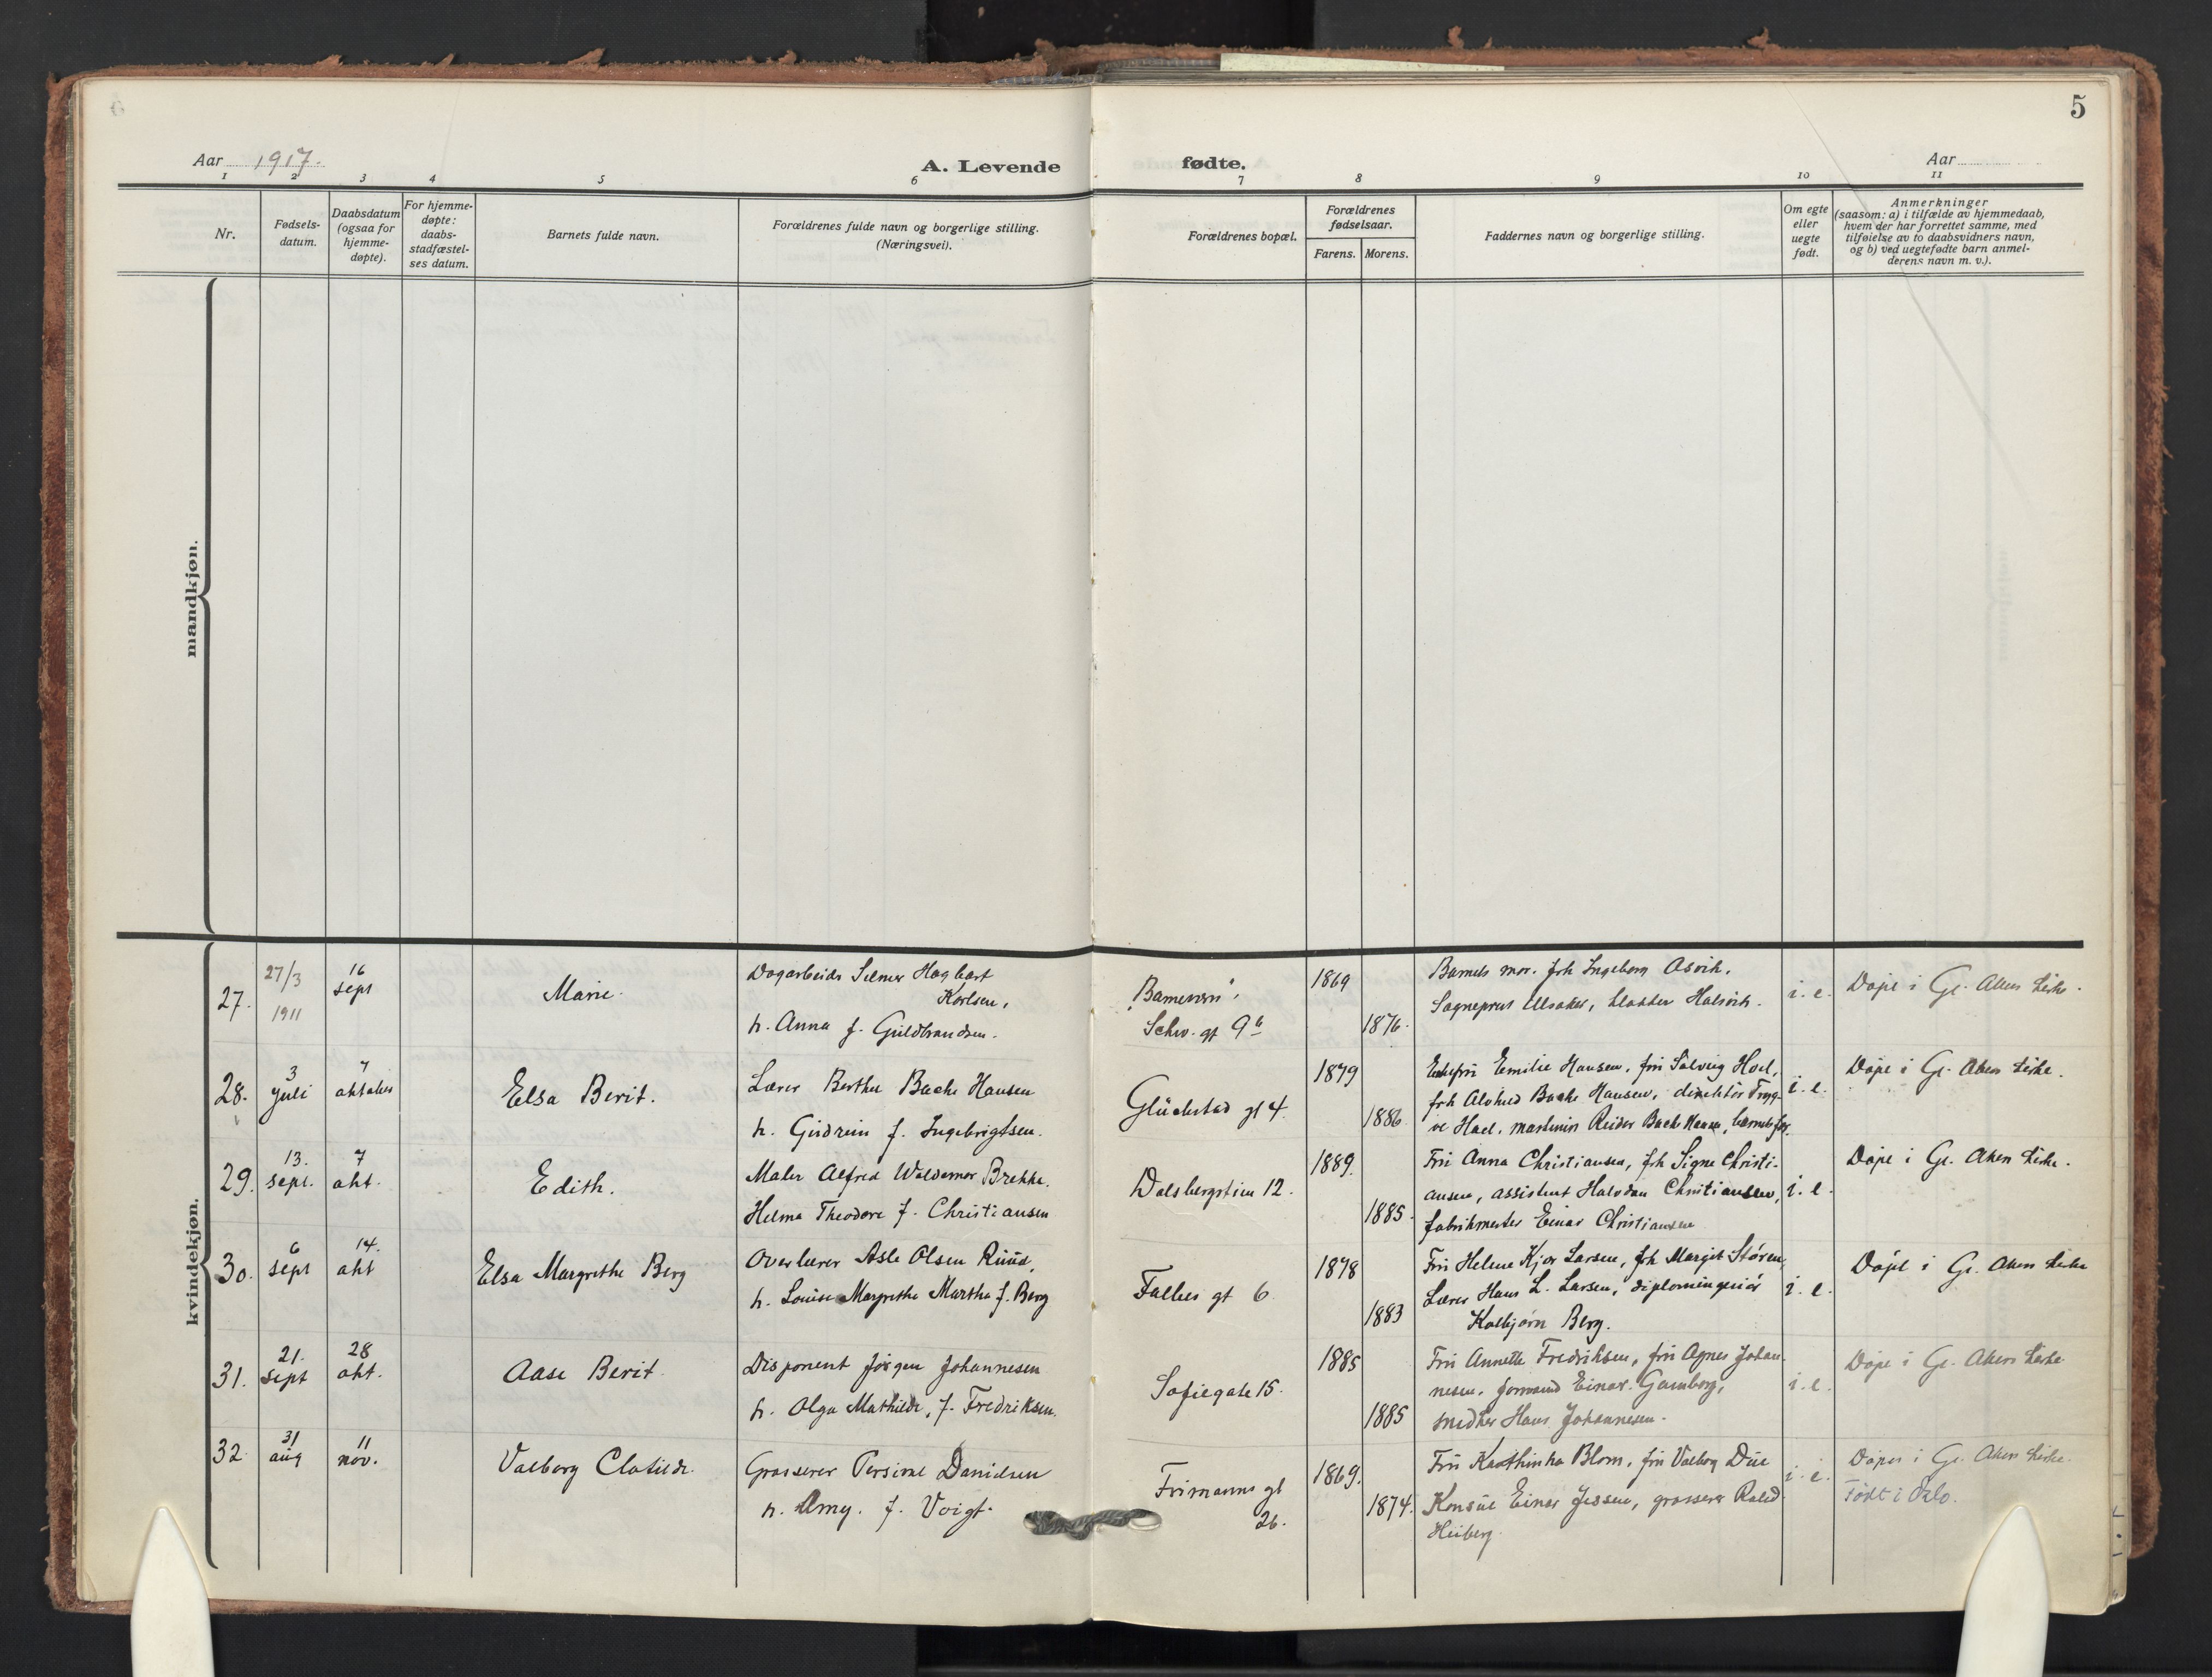 5
Aar 1917.
A. Levende fødte.
Aar
1 2 3 4 5 6 7 8 9 10 11
Nr.
Fødsels-
datum.
Daabsdatum
(ogsaa for
hjemme-
døpte).
For hjemme-
døpte:
daabs-
stadfæstel-
ses datum.
Barnets fulde navn.
Forældrenes fulde navn og borgerlige stilling.
(Næringsvei).
Forældrenes bopæl.
Forældrenes
fødselsaar.
Farens. Morens.
Faddernes navn og borgerlige stilling.
Om egte
eller
uegte
født.
Anmerkninger
(saasom: a) i tilfælde av hjemmedaab,
hvem der har forrettet samme, med
tilføielse av to daabsvidners navn,
og b) ved uegtefødte barn anmel-
derens navn m. v.).
mandkjøn.
kvindekjøn.
27.
27/3
1911
16
sept
Marie.
Dagarbeider Hagbart
Karlsen,
h. Anna f. Guldbrandsen.
Schw. gt 9b
1869
1876.
Barnets mor. frk Ingeborg
Sogneprest
i. e.
Døpt i Gl. Aker kirke.
28.
3
juli
7
oktober
Elsa Berit.
Lærer Barthu Bache Hansen
h. Gudrun f. Ingebrigtsen.
Glückstad gt 4.
1879
1886
Enkefru Emilie Hansen, fru Solveig Hoel,
frk Bache Hansen, direktør Tryg-
ve Hoel, Reidar Bache Hansen, barnets far.
i. e.
Døpt i Gl. Aker kirke.
29.
13.
sept.
7
okt.
Edith.
Maler Alfred Waldemar Brekke.
Helma Theodore f. Christiansen
Dalsbergstien 12.
1889.
1885.
Fru Anna Christiansen, frk Signe Christi-
ansen, assistent Halvdan Christiansen,
fabrikmester Einar Christiansen
i. e.
Døpt i Gl. Aker kirke.
30.
6
sept
14.
okt
Elsa Margrethe Berg
Overlærer Asle Olsen Ruud,
h. Louise Margrethe Martha f. Berg
Falbes gt 6
1878
1883
Fru Helene Kjær Larsen, frk Margit Støren,
Lærer Hans L. Larsen, diplomingeniør
Kolbjørn Berg.
i. e.
Døpt i Gl. Aker kirke
31.
21.
sept
28
okt.
Aase Berit.
Disponent Jørgen Johannesen
h. Olga Mathilde, f. Fredriksen.
Sofiegate 15.
1885
1885
Fru Annette Fredriksen, fru Agnes Johan-
nesen, formand Einar Gamborg,
snedker Hans Johannesen.
i. e.
Døpt i Gl. Aker kirke
32
31
aug
11
nov.
Valborg Clotilde.
Grosserer Persival Danielsen
h. Amy. f. Voigt.
Frimanns gt
26.
1869.
1874.
Fru Kathinka Blom, fru Valborg Due
Konsul Einar Jessen, grosserer
Heiberg.
i. e.
Døpt i Gl. Aker kirke.
Født i Oslo.